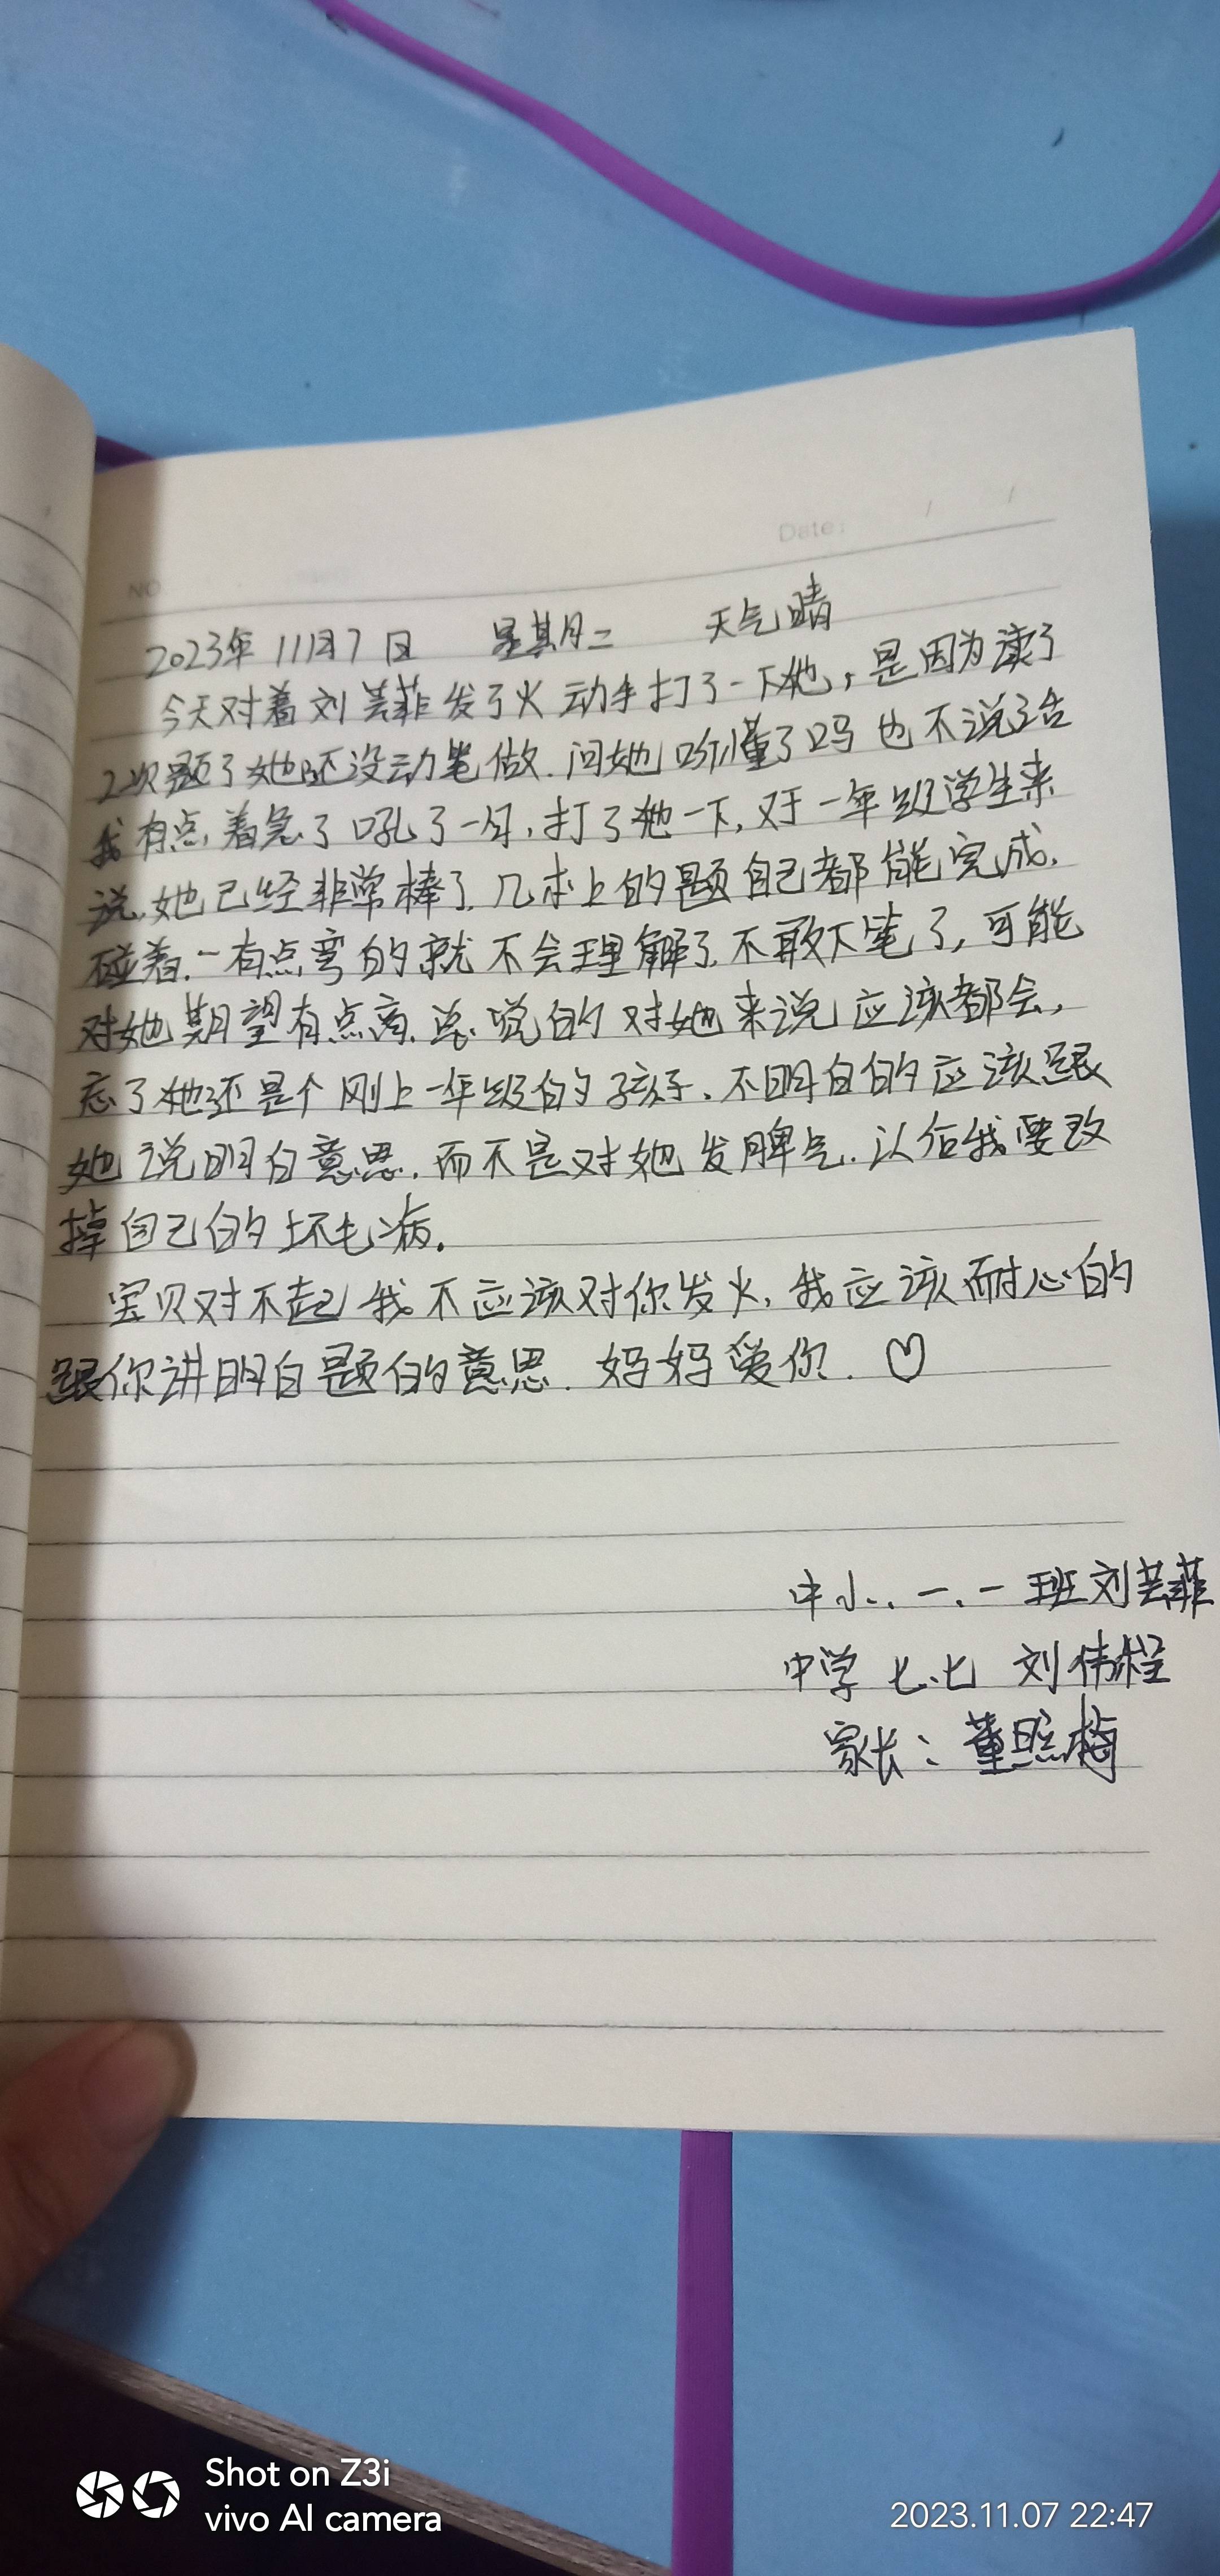 NO
Date: / /
2023年11月7日 星期二 天气晴
今天对着刘芸菲发了火 动手打了一下她，是因为读了
2次题了她还没动笔做.问她听懂了吗也不说话
我有点着急了吼了一句,打了她一下,对于一年级学生来
说.她已经非常棒了.几本上的题自己都能完成.
碰着.一有点弯的就不会理解了.不敢下笔了,可能
对她期望有点高.总说的对她来说应该都会,
忘了她还是个刚上一年级的孩子.不明白的应该跟
她说明白意思.而不是对她发脾气.以后我要改
掉自己的坏毛病.
宝贝对不起我不应该对你发火,我应该耐心的
跟你讲明白题的意思.妈妈爱你.♡
中小.一.一班刘芸菲
中学七.七 刘伟程
家长：董照梅
Shot on Z3i
vivo AI camera
2023.11.07 22:47